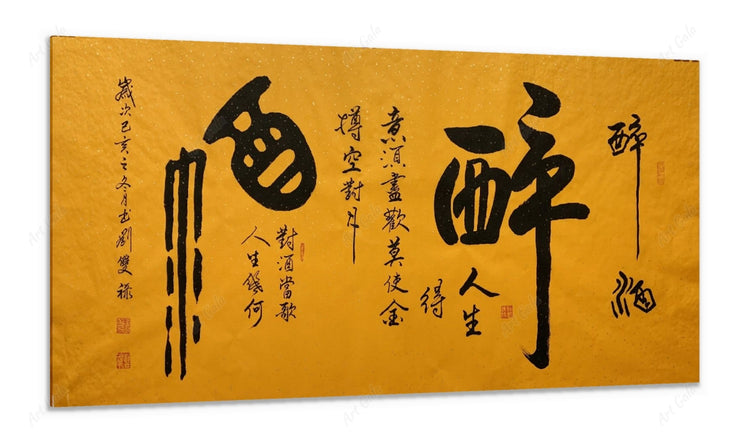 醉酒
醉
人生
得
意須盡歡莫使金
樽空對月
酒
對酒當歌
人生幾何
歲次己亥之冬月书劉雙祿
Art Gale